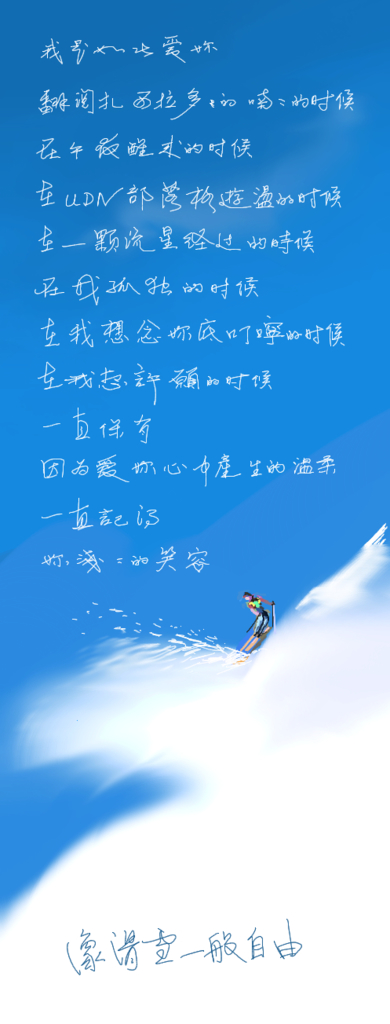 我是如此愛妳
翻閱扎西拉多多的喃喃的时候
在午夜醒来的时候
在UDN部落格遊盪的时候
在一顆流星经过的時候
在我孤独的时候
在我想念妳底叮嚀的时候
在我想許願的时候
一直保有
因為愛妳心中產生的溫柔
一直記得
妳淺淺的笑容
像滑雪一般自由